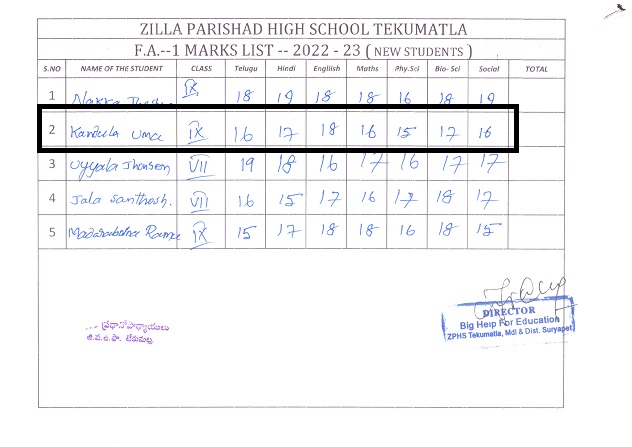 ZILLA PARISHAD HIGH SCHOOL TEKUMATLA
F.A.--1 MARKS LIST -- 2022 - 23 ( NEW STUDENTS )
S.NO NAME OF THE STUDENT CLASS Telugu Hindi Engliish Maths Phy.Sci Bio- Sci Social TOTAL
1 Nakka IX 18 19 18 18 16 18 19
2 Kandula Uma IX 16 17 18 16 15 17 16
3 Uyyala Jhonsen VII 19 18 16 17 16 17 17
4 Jala Santhosh. VII 16 15 17 16 17 18 17
5 IX 15 17 18 18 16 18 15
ప్రధానోపాధ్యాయులు
జి.ప.ఉ.పా. టేకుమట్ల
DIRECTOR
Big Help For Education
ZPHS Tekumatla, Mdl & Dist. Suryapet